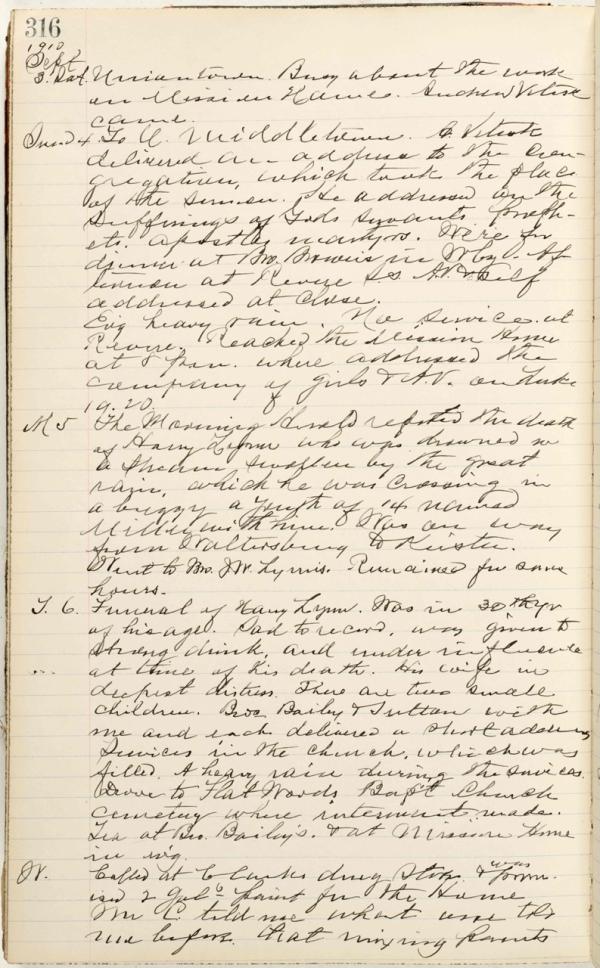 316
1910
Sept
3. Sat. Uniontown. Busy about the work
on Mission Home. Andrew
came.
Sund 4. To U. Middletown. A.
delivered an address to the con-
gregation, which took the place
of the sermon. He addressed on the
Sufferings of Gods Servants proph-
ets. apostles martyrs. We're for
dinner at Bro. in Wbg. Af-
ternoon at Revere S.S. A.V. & self
addressed at close.
Ev'g heavy rain. No service at
Revere. Reached the Mission Home
at 8 p.m. where addressed the
company of girls & A.V. on Luke
19.20.
M 5 The Morning Herald reported the death
of Harry Lynn who was drowned in
a stream swollen by the great
rain, which he was crossing in
a buggy a youth of 14 named
with him. Was on way
from Waltersburg to
Went to Bro. J.W. Lynn's. Remained for some
hours.
T. 6. Funeral of Harry Lynn. Was in 30th yr
of his age. Sad to record, was given to
strong drink, and under influence
at time of his death. His wife in
deepest distress. There are two small
children. Bros. Bailey & Sutton with
me and each delivered a short address
Services in the church, which was
filled. A heavy rain during the services.
Drove to Flat Woods Bapt Church
cemetery where interment made.
Tea at Bro. Bailey's. & at Mission Home
in ev'g.
W. Called at C Clarks drug Store & was prom-
ised 2 Gals paint for the Home
Mr C. told me what
me before. that mixing paints